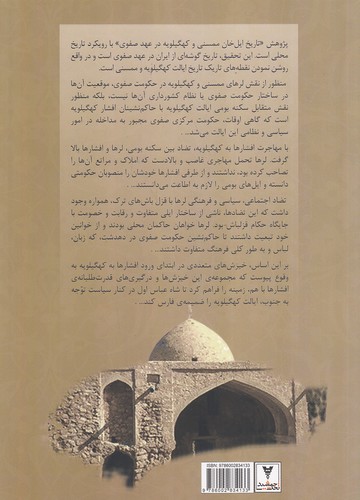 پژوهش «تاریخ ایل‌خان ممسنی و کهگیلویه در عهد صفوی» با رویکرد تاریخ
محلی است. این تحقیق، تاریخ گوشه‌ای از ایران در عهد صفوی است و در واقع
روشن نمودن نقطه‌های تاریک تاریخ ایالت کهگیلویه و ممسنی است.
منظور از نقش لرهای ممسنی و کهگیلویه در حکومت صفوی، موقعیت آن‌ها
در ساختار حکومت صفوی یا نظام کشورداری آن‌ها نیست، بلکه منظور
نقش متقابل سکنه بومی ایالت کهگیلویه با حاکم‌نشینان افشار کهگیلویه
است که گاهی اوقات، حکومت مرکزی صفوی مجبور به مداخله در امور
سیاسی و نظامی این ایالت می‌شد..
با مهاجرت افشارها به کهگیلویه، تضاد بین سکنه بومی، لرها و افشارها بالا
گرفت. لرها تحمل مهاجری غاصب و بالادست که املاک و مراتع آن‌ها را
تصاحب کرده بود، نداشتند و از طرفی افشارها خودشان را منصوبان حکومتی
دانسته و ایل‌های بومی را لازم به اطاعت می‌دانستند...
تضاد اجتماعی، سیاسی و فرهنگی لرها با قزل باش‌های ترک، همواره وجود
داشت که این تضادها، ناشی از ساختار ایلی متفاوت و رقابت و خصومت با
جایگاه حکام قزلباش بود. لرها خواهان حاکمان محلی بودند و از خوانین
خود تبعیت داشتند تا حاکم‌نشین حکومت صفوی در دهدشت، که زبان،
لباس و به طور کلی فرهنگ متفاوت داشتند...
بر این اساس، خیزش‌های متعددی در ابتدای ورود افشارها به کهگیلویه به
وقوع پیوست که مجموعه‌ی این خیزش‌ها و درگیری‌های قدرت‌طلبانه‌ی
افشارها با هم، زمینه را فراهم کرد تا شاه عباس اول در کنار سیاست توجه
به جنوب، ایالت کهگیلویه را ضمیمه‌ی فارس کند.
ISBN: 9786002834133
9 786002 834133